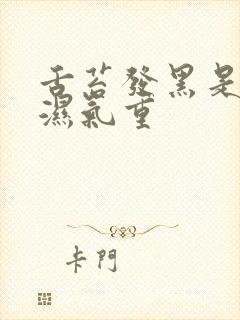 舌苔發黑是
濕氣重
卡門